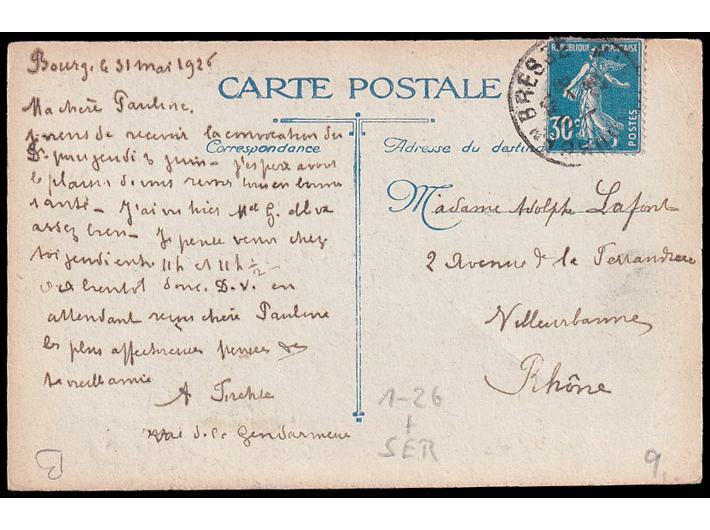 Bourg, le 31 mai 1926
CARTE POSTALE
REPUBLIQUE FRANÇAISE
30c
POSTES
BRESSE
Ma chère Pauline,
je viens de recevoir la convocation du
Dr pour jeudi 3 juin - j'espère avoir
le plaisir de vous revoir tous en bonne
santé - J'ai vu hier Mlle G. elle va
assez bien - Je pense venir chez
toi jeudi entre 11h et 11h ½ -
A bientôt donc. D. V. en
attendant reçois chère Pauline
les plus affectueuses pensées de
ta vieille amie
A
rue de la Gendarmerie
Correspondance
Adresse du destin
Madame Adolphe Lafont
2 Avenue de la
Villeurbanne
Rhône
1-26
+
SER
B
9.